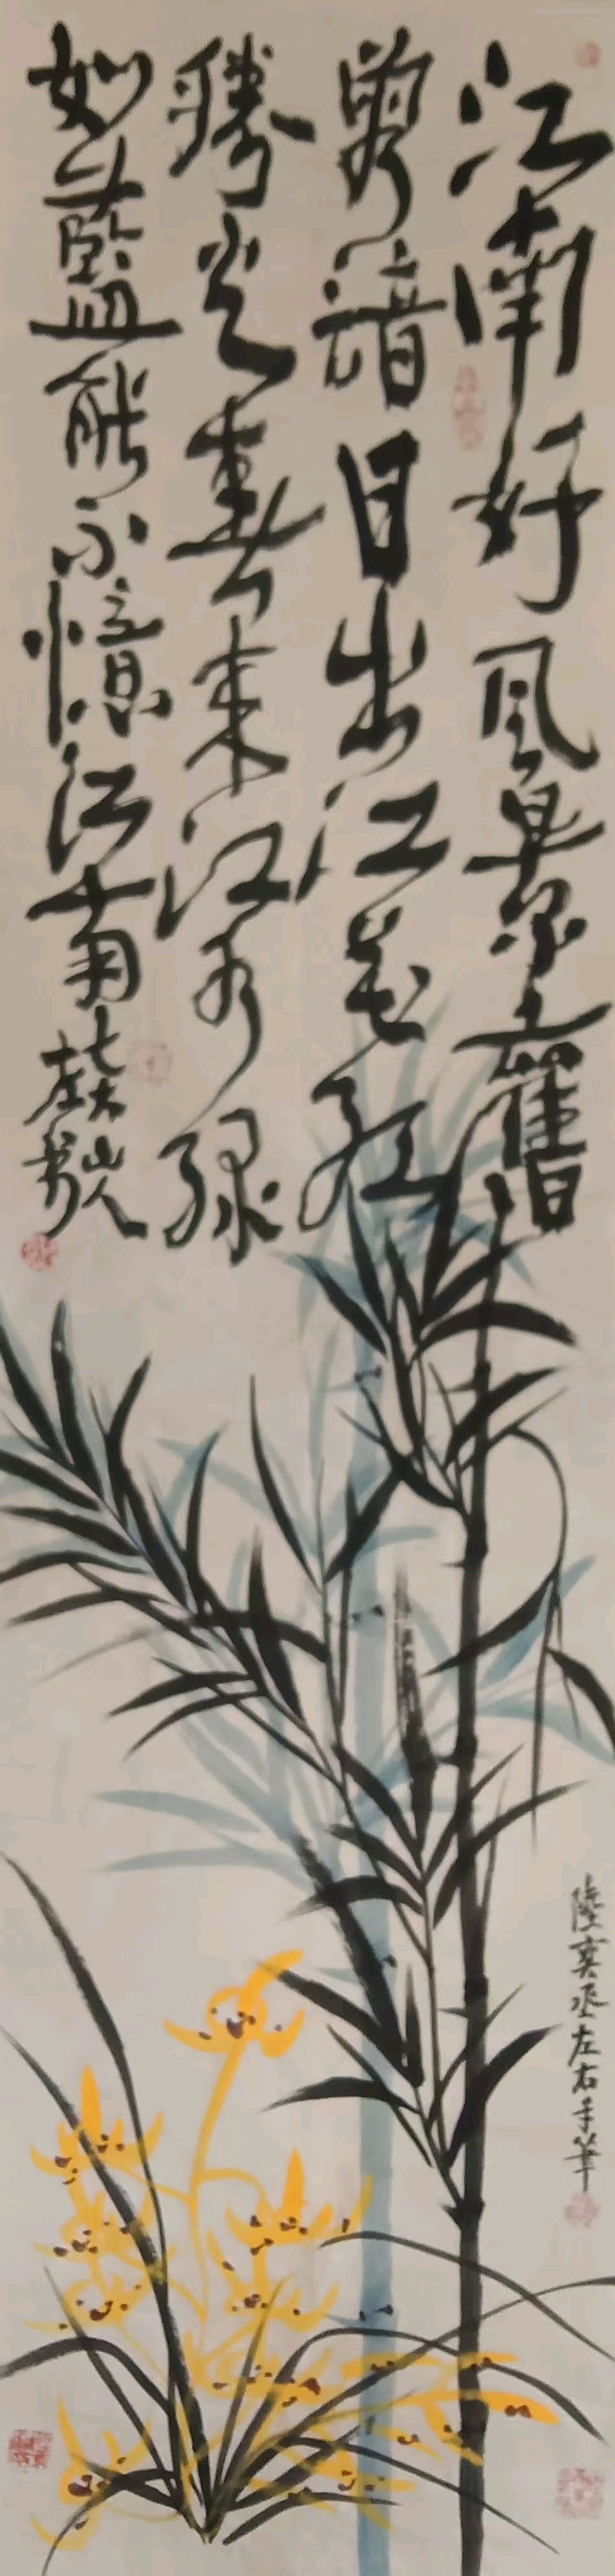 江南好风景舊
曾諳日出江花红
勝火春来江水绿
如藍能不憶江南
陸奕丞左右手筆